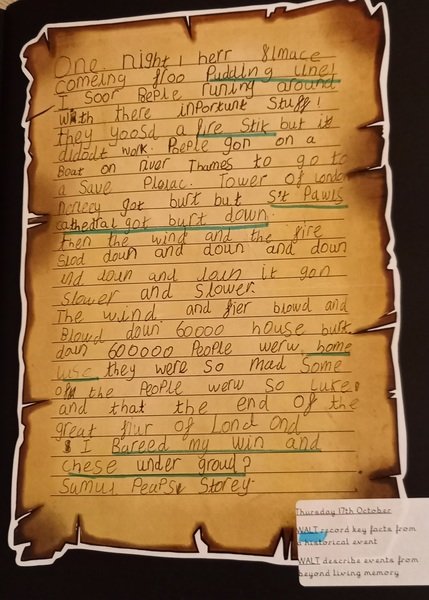 One night I herr Slmace
comeing froo Pudding line!
I soor Beple runing around
with there inportunt stuff!
they yoosd a fire Stik but it
didodt work. Poeple gon on a
Boat on river Thames to go to
a Save Plaiac. Tower of London
norlecy got burt but St Pawls
cathedral got burt down.
then the wind and the fire
Slod doun and doun and doun
and doun and doun it gon
slower and Slower.
The wind and fier blowd and
Blowd down 60000 house burt
doun 600000 People werw home
luse they were so mad Some
of the People werw so Luke.
and that the end of the
great fiur of Lond ond
I Bareed my win and
chese under groud?
Samul Peapse Storey.
Thursday 17th October
WALT record key facts from
a historical event
WALT describe events from
beyond living memory